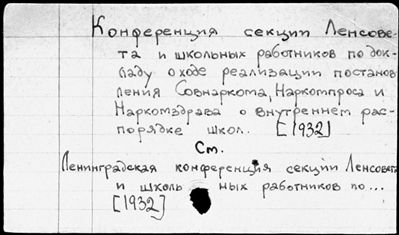 Конференция секции Ленсове-
та и школьных работников по док-
ладу о ходе реализации постанов
ления Совнаркома, Наркомпроса и
Наркомздрава о внутреннем рас-
порядке школ. [1932]
См.
Ленинградская конференция секции Ленсовета
и школь ных работников по...
[1932]